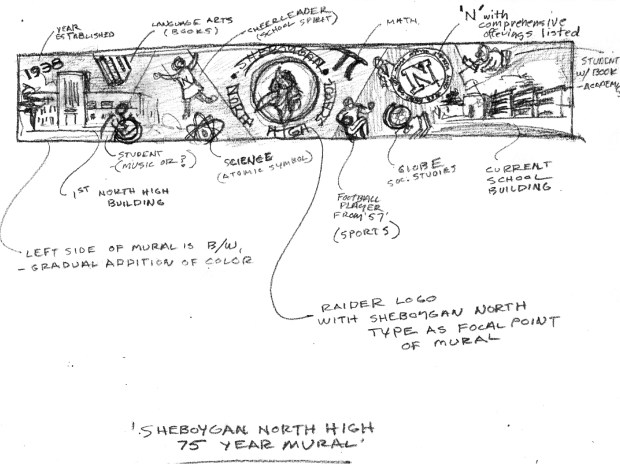 YEAR
ESTABLISHED
LANGUAGE ARTS
(BOOKS)
CHEERLEADER
(SCHOOL SPIRIT)
MATH
'N' with
comprehensive
offerings listed
STUDENT
W/ BOOK
-ACADEMY
1938
SHEBOYGAN
NORTH
HIGH
N
STUDENT
(MUSIC OR ?)
SCIENCE
(ATOMIC SYMBOL)
GLOBE
SOC. STUDIES
CURRENT
SCHOOL
BUILDING
1ST NORTH HIGH
BUILDING
FOOTBALL
PLAYER
FROM '57'
(SPORTS)
- LEFT SIDE OF MURAL IS B/W,
- GRADUAL ADDITION OF COLOR
RAIDER LOGO
WITH SHEBOYGAN NORTH
TYPE AS FOCAL POINT
OF MURAL
'SHEBOYGAN NORTH HIGH
75 YEAR MURAL'